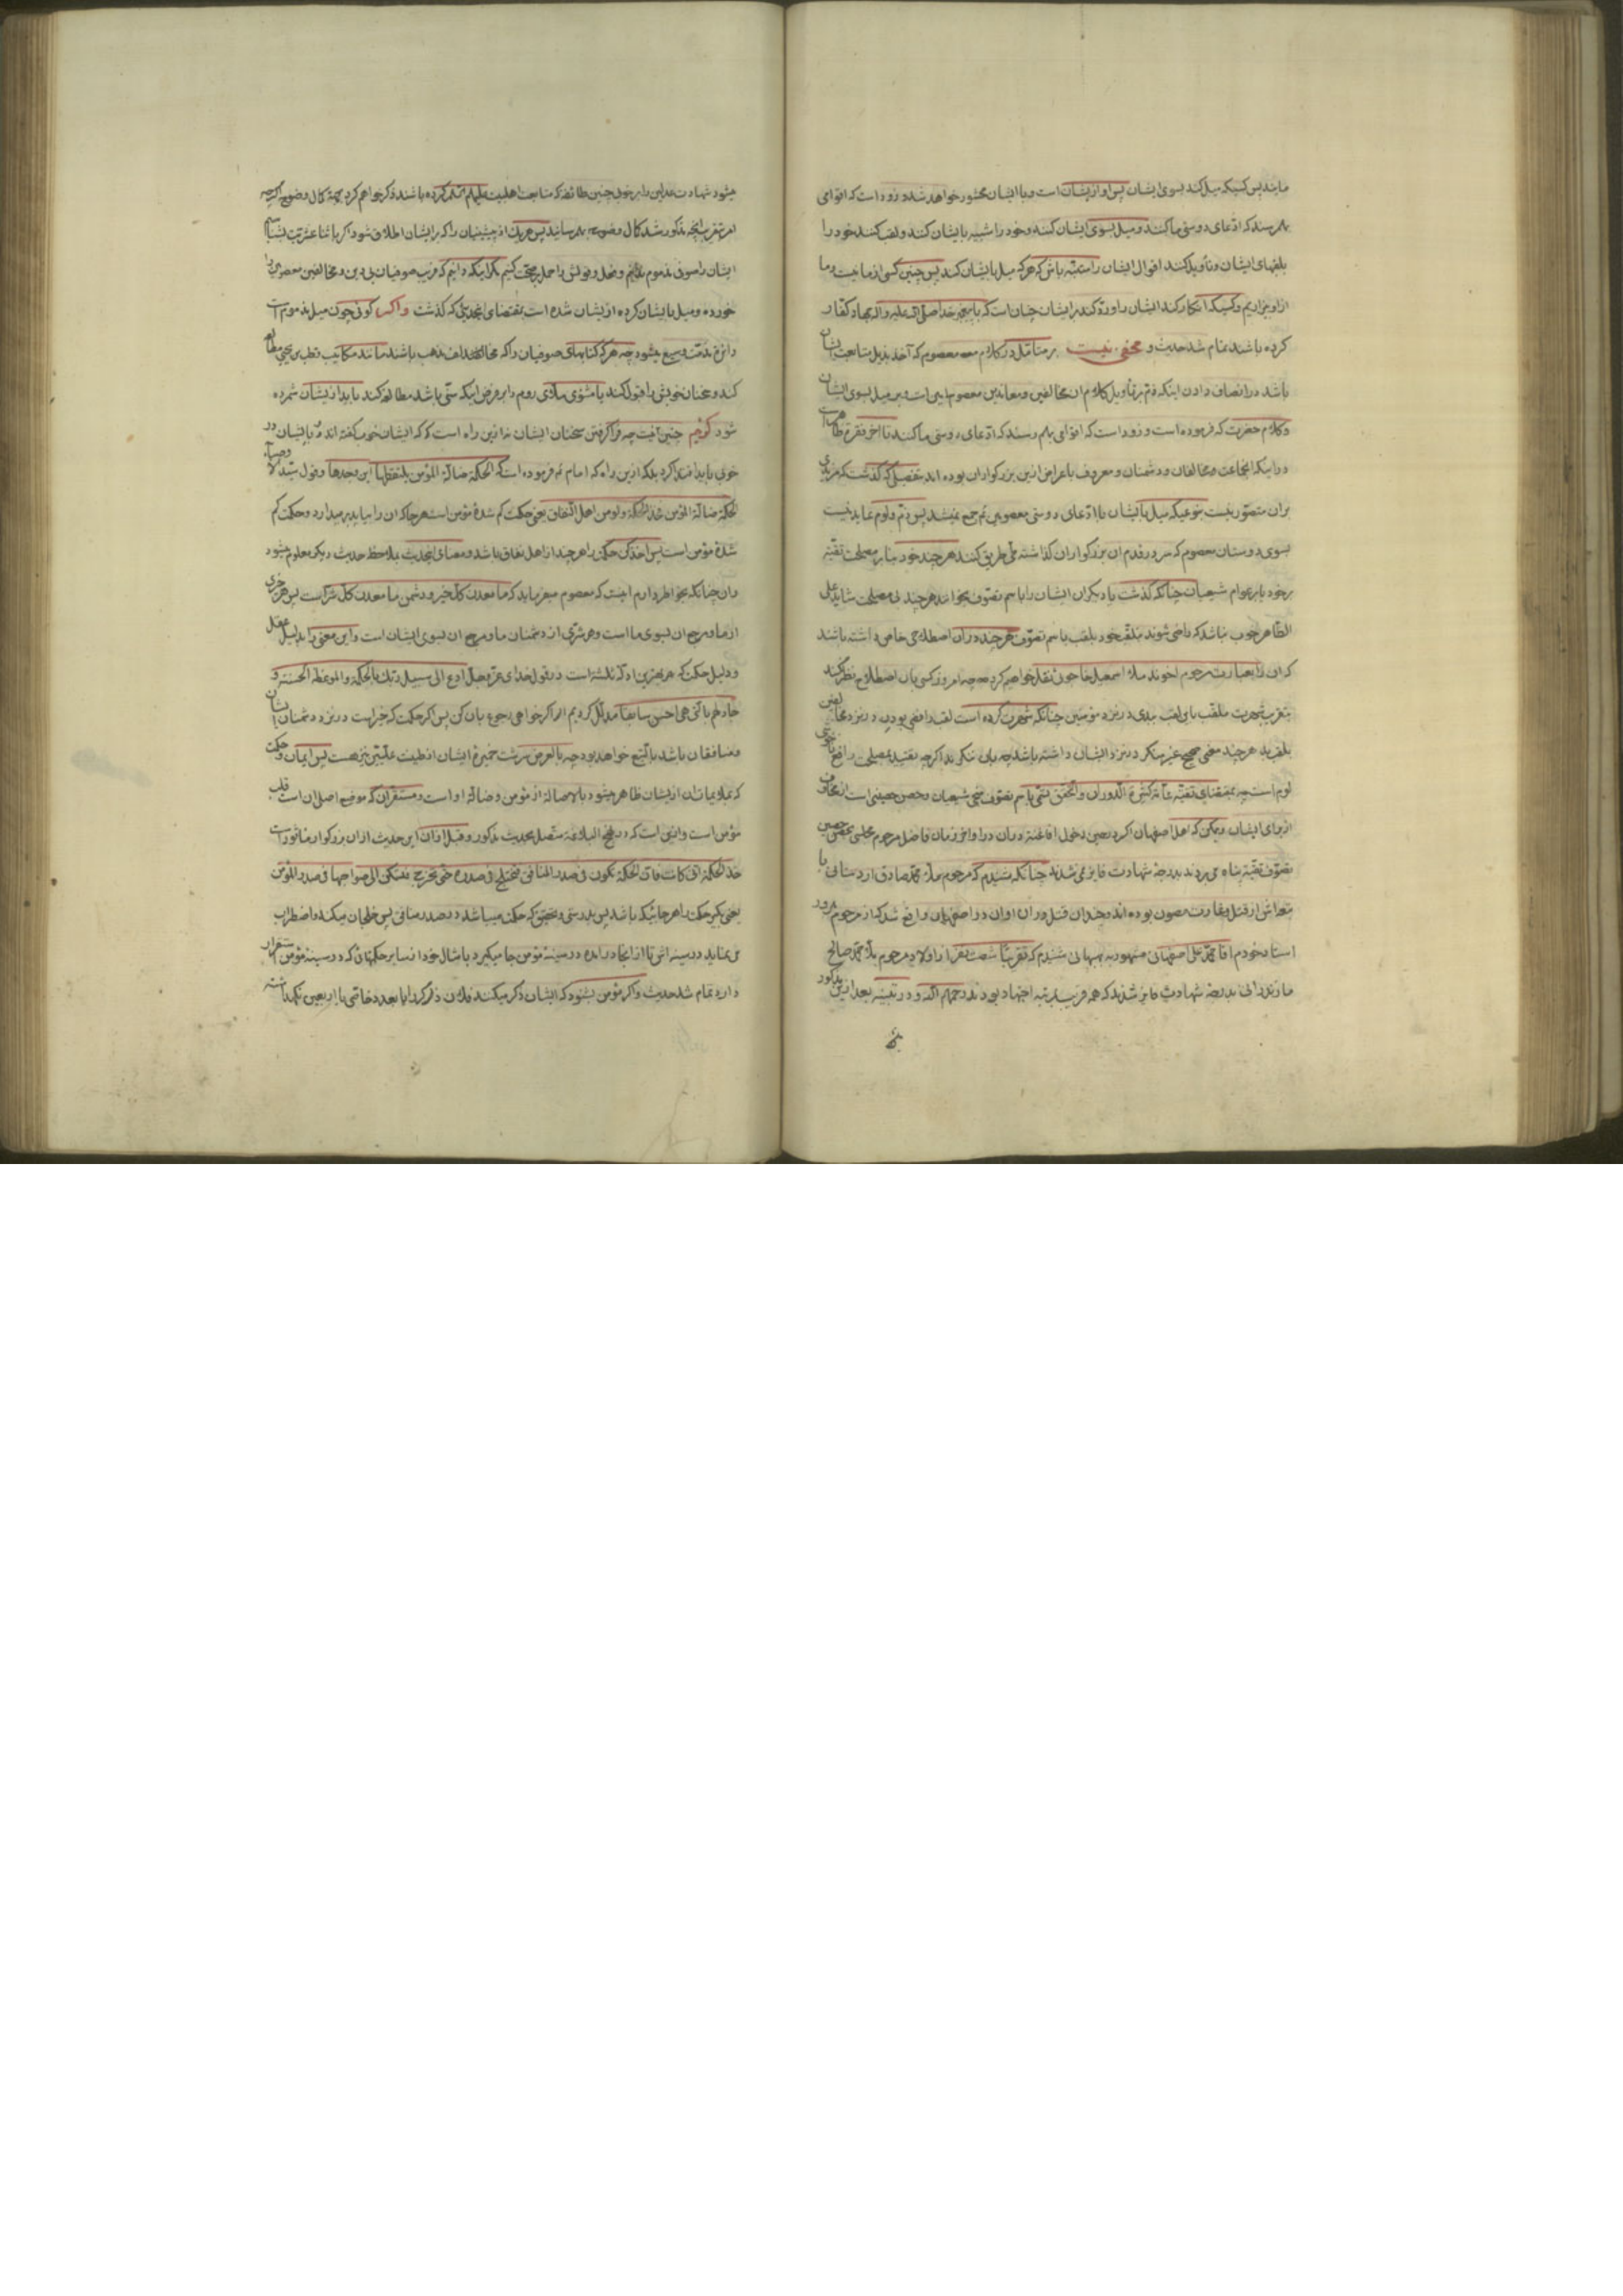 مایند پس کسیکه میل کند بسوی ایشان پس او از ایشان است و با ایشان محشور خواهد شد و زود است که اقوامی
بهم رسند که ادعای دوستی ما کنند و میل بسوی ایشان کنند و خود را شبیه بایشان کنند و لقب کنند خود را
بلقبهای ایشان و تأویل کنند اقوال ایشان را متنبه باش که هر که میل بایشان کند پس چنین کسی از ما نیست و ما
از او بیزاریم و کسیکه انکار کند ایشان را و رد کند بر ایشان چنان است که با پیغمبر خدا صلی الله علیه و اله جهاد کفار
کرده باشند تمام شد حدیث و مخفی نیست بر متأمل در کلام معصوم که آخذ بذیل متابعت ایشان
باشد در انصاف دادن اینکه ذم بر تأویل کلام ان مخالفین و معاندین معصومین است و بر میل بسوی ایشان
و کلام حضرت که فرموده است و زود است که اقوامی بهم رسند که ادعای دوستی ما کنند تا اخر فقره ظاهر است
در اینکه انجماعت و مخالفان و دشمنان و معروف باعراض ازین بزرکواران بوده اند بتفصیلی که کذشت که مزیدی
بران متصور نیست بنوعیکه میل بایشان با ادعای دوستی معصومین ع جمع نمیشد پس ذم و لوم عاید نیست
بسوی دوستان معصوم که سر در قدم ان بزرکواران کذاشته طی طریق کنند هر چند خود بنا بر مصلحت تقیه
بر خود یا بر عوام شیعیان چنانکه کذشت یا دیکران ایشان را باسم تصوف بخوانند هر چند بی مصلحت شاید علی
الظاهر خوب نباشد که راضی شوند بتلقب خود بلقب باسم تصوف هر چند دران اصطلاحی خاص داشته باشند
که ان را بعبارت مرحوم اخوند ملا اسمعیل خاجوئی نقل خواهیم کرد چه امروز کسی بان اصطلاح نظر نکند
بتقریب شهرت ملقب باین لقب ببدی در نزد مؤمنین چنانکه شهرت کرده است لقب رافضی بودن در نزد مخالفین
بلقب بد هر چند معنی صحیح غیر منکر در نزد ایشان داشته باشد چه بان ننکرند اکرچه تقیید بمصلحتی رافع
لوم است چه بمقتضای تقیه عامة کثیرة الدوران و التحقق تسمی باسم تصوف منجی شیعیان و حصن حصینی است از مخاوف
از برای ایشان و ممکن که اهل اصفهان اکر در حین دخول افاغنه دران در اواخر زمان فاضل مرحوم مجلسی بحصن حصین
تصوف تقیة پناه می بردند بدرجه شهادت فایز نمی شدند چنانکه شنیدم که مرحوم ملا محمد صادق اردستانی با
اتباعش از قتل و غارت مصون بوده اند و چندان قتل دران اوان در اصفهان واقع شد که از مرحوم مبرور
استاد خودم اقا محمد علی اصفهانی مشهور به بهبهانی شنیدم که تقریباً شصت نفر از اولاد مرحوم ملا محمد صالح
مازندرانی بدرجه شهادت فایز شدند که همه قریب بمرتبه اجتهاد بودند رحمهم الله و در تتمه بعد ازین مذکور
میشود شهادت عدلین را بر خوبی چنین طائفه که متابعت اهلبیت علیهم السلام کرده باشند ذکر خواهم کرد بجهة کمال وضوح اکرچه
امر بتقریب انچه مذکور شد کمال وضوح بهم رسانید پس هر یک از پیشینیان را که بر ایشان اطلاق شود اکر با ثنا عشریت بشناسیم
ایشان را صوفی مذموم ندانیم و فعل و قولش را حمل بر صحت کنیم مکر اینکه دانیم که فریب صوفیان بی دین و مخالفین معصومین را
خورده و میل بایشان کرده از ایشان شده است بمقتضای انحدیثی که کذشت و اکر کوئی چون میل مذموم است
دائره مذمت وسیع میشود چه هر که کتابهای صوفیان را که مخالف مذهب باشند مانند مکاتیب قطب بن یحیی مطالعه
کند و سخنان خوبش را قبول کند یا مثنوی ملای روم را بر فرض اینکه سنی باشد مطالعه کند باید از ایشان شمرده
شود کوئیم چنین نیست چه فرا کرفتن سخنان ایشان نه ازین راه است که که ایشان خوب کفته اند و بایشان در
خوبی باید اقتدا کرد بلکه ازین راه که امام ع فرموده است که الحکمة ضالة المؤمن یلتقطها این وجدها و قول سید الاوصیاء
الحکمة ضالة المؤمن خذ الحکمة ولو من اهل النفاق یعنی حکمت کم شده مؤمن است هر جا که ان را بیابد بر میدارد و حکمت کم
شدهٔ مؤمن است پس اخذ کن حکمت را هر چند از اهل نفاق باشد و معنای انحدیث بملاحظه حدیث دیکر معلوم میشود
و ان چنانکه بخواطر دارم اینست که معصوم میفرماید که ما معدن کل خیر و دشمن ما معدن کل شر است پس هر خیری
از ما و مرجع ان بسوی ما است و هر شری از دشمنان ما و مرجع ان بسوی ایشان است و این معنی را بدلیل عقل
و دلیل حکمت که بهترین ادله ثلثه است در قول خدای عز و جل ادع الی سبیل ربک بالحکمة و الموعظة الحسنة و
جادلهم بالتی هی احسن سابقا مدلل کردیم اکر خواهی رجوع بان کن پس اکر حکمت که خیر است در نزد دشمنان ایشان
و منافقان باشد بالتبع خواهد بود چه بالعرض سرشت خمیرهٔ ایشان از طینت علیین نیز هست پس ایمان و حکمت
که عملا یا بیان از ایشان ظاهر میشود بالاصالة از مؤمن و ضالهٔ او است و مستقران که موضع اصل ان است قلب
مؤمن است و انی است که در نهج البلاغه متصل بحدیث مذکور و قبل ازان این حدیث ازان بزرکوار ماثور است
خذ الحکمة انی کانت فان الحکمة تکون فی صدر المنافق فتختلج فی صدره حتی تخرج فتسکن الی صواحبها فی صدر المؤمن
یعنی بکیر حکمت را هر جائیکه باشد پس بدرستی و تحقیق که حکمت میباشد در صدر منافق پس خلجان میکند و اضطراب
می نماید در سینه اش تا از انجا دراید و در سینهٔ مؤمن جا میکیرد با مثال خود از سایر حکمتهائی که در سینهٔ مؤمن استقرار
دارد تمام شد حدیث و اکر مؤمن بشنود که ایشان ذکر میکنند فلان ذکر کردرا با بعدد خاصی یا اربعین نکهداشته